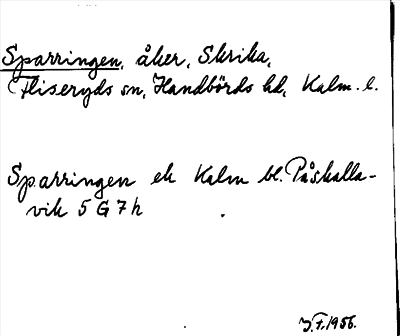 Sparringen, åker, Skrika,
Fliseryds sn, Handbörds hd, Kalm. l.
Sparringen ek Kalm bl. Påskalla-
vik 5 G 7 h
J.F. 1956.